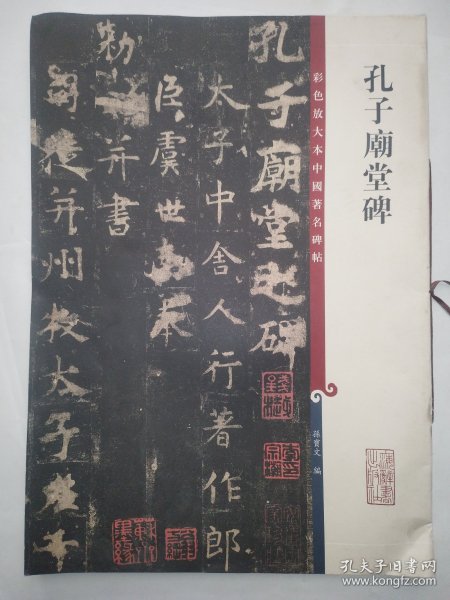 孔子廟堂碑
彩色放大本中國著名碑帖
孫寶文 編
孔子廟堂之碑
太子中舍人行著作郎
臣虞世南奉
勑
并書
司徒并州牧太子左千
孔夫子旧书网
book.kongfz.com